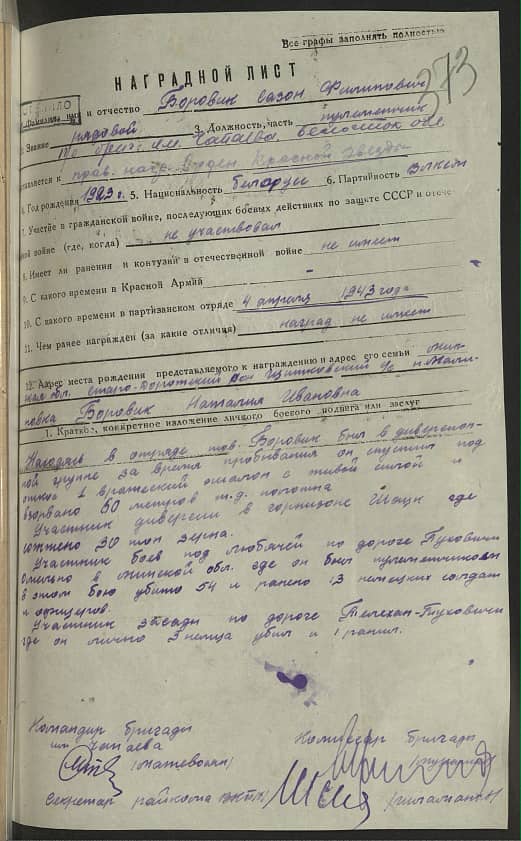 Все графы заполнять полностью
373
НАГРАДНОЙ ЛИСТ
и отчество Боровик Сазон Филипович
Звание рядовой 3. Должность, часть пулеметчик
бриг. им. Чапаева, обл.
к прав. нагр. Орден Красной Звезды
Год рождения 1923 г. 5. Национальность беларус 6. Партийность
7. Участие в гражданской войне, последующих боевых действиях по защите СССР и отече-
ной войне (где, когда) не участвовал
8. Имеет ли ранения и контузии в отечественной войне не имеет
9. С какого времени в Красной Армии –
10. С какого времени в партизанском отряде 4 апреля 1943 года
11. Чем ранее награжден (за какие отличия) наград не имеет
12. Адрес места рождения представляемого к награждению и адрес его семьи Мин-
ская обл. Старо-Дорожский р-он
Боровик Наталия Ивановна
1. Краткое, конкретное изложение личного боевого подвига или заслуг
Находясь в отряде тов. Боровик был в диверсион-
ной группе за время пребывания он спустил под
откос 1 вражеский эшалон с живой силой и
взорвано 50 метров ж.д. полотна
Участник диверсии в горнизоне Шацк где
сожжено 30 тон зерна.
Участник боев под Любячей по дороге Пуховичи
Омельно в Минской обл. где он был пулеметчиком
в этом бою убито 54 и ранено 13 немецких солдат
и офицеров.
Участник засады по дороге Телехан-Глуховичи
где он лично 3 немца убил и 1 ранил.
Командир бригады
им Чапаева
Комиссар бригады
Секретар райкома